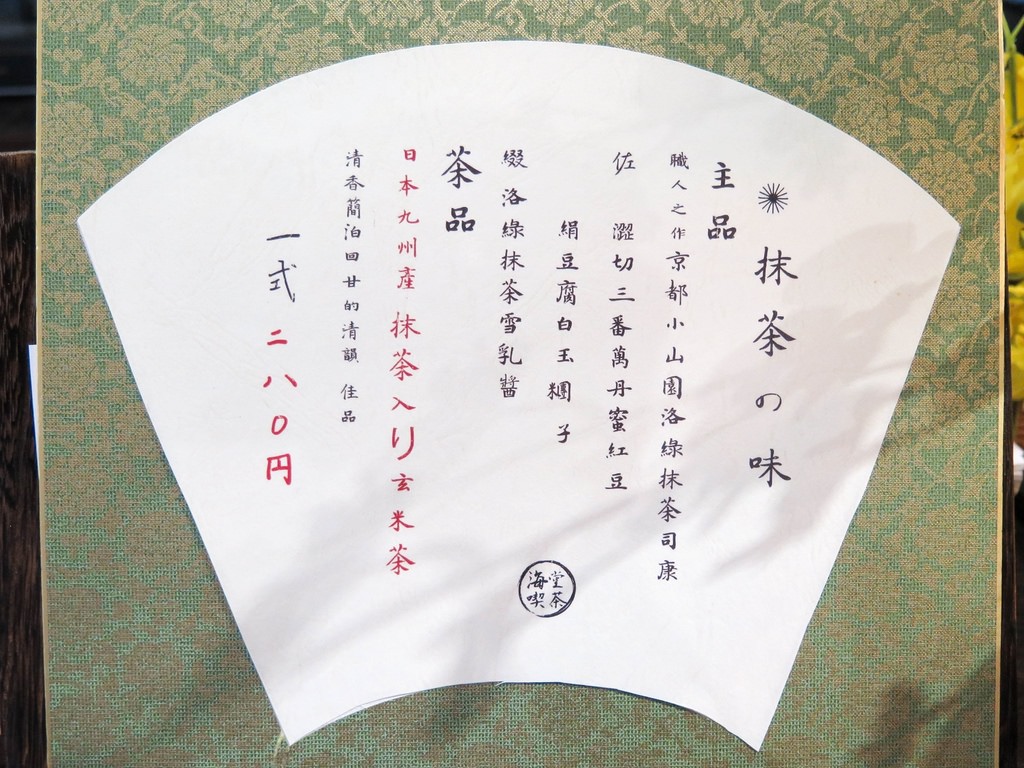 抹茶の味
主品
職人之作京都小山園洛綠抹茶司康
佐 澀切三番萬丹蜜紅豆
絹豆腐白玉糰子
綴洛綠抹茶雪乳醬
茶品
日本九州產抹茶入り玄米茶
清香簡泊回甘的清韻 佳品
一式二八〇円
堂茶
海喫